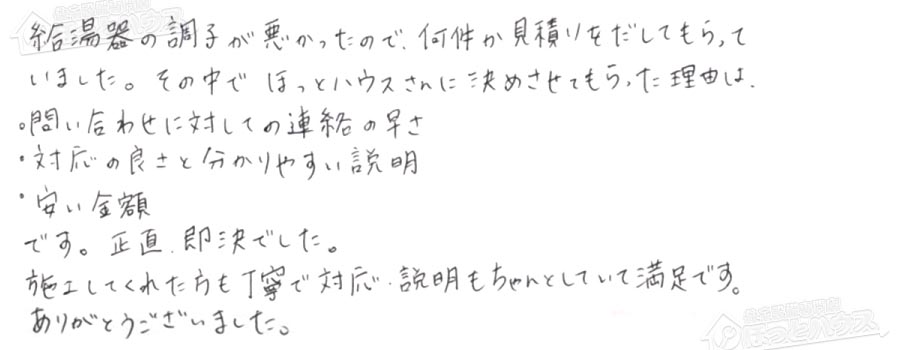 給湯器の調子が悪かったので、何件か見積りをだしてもらって
いました。その中でほっとハウスさんに決めさせてもらった理由は、
・問い合わせに対しての連絡の早さ
・対応の良さと分かりやすい説明
・安い金額
です。正直、即決でした。
施工してくれた方も丁寧で対応・説明もちゃんとしていて満足です。
ありがとうございました。
ほっとハウス